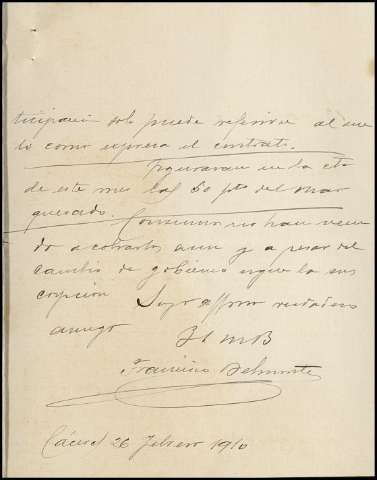 ticipación solo puede referirse al sue
lo como expresa el contrato.
Figuraran en la cta
de este mes las 60 pts del Mar
quesado. Consumos no han veni
do a cobrarlos aun y a pesar del
cambio de gobierno sigue la sus
cripción Suyo affmo verdadero
amigo B L M B
Francisco Belmonte
Cáceres 26 Febrero 1910